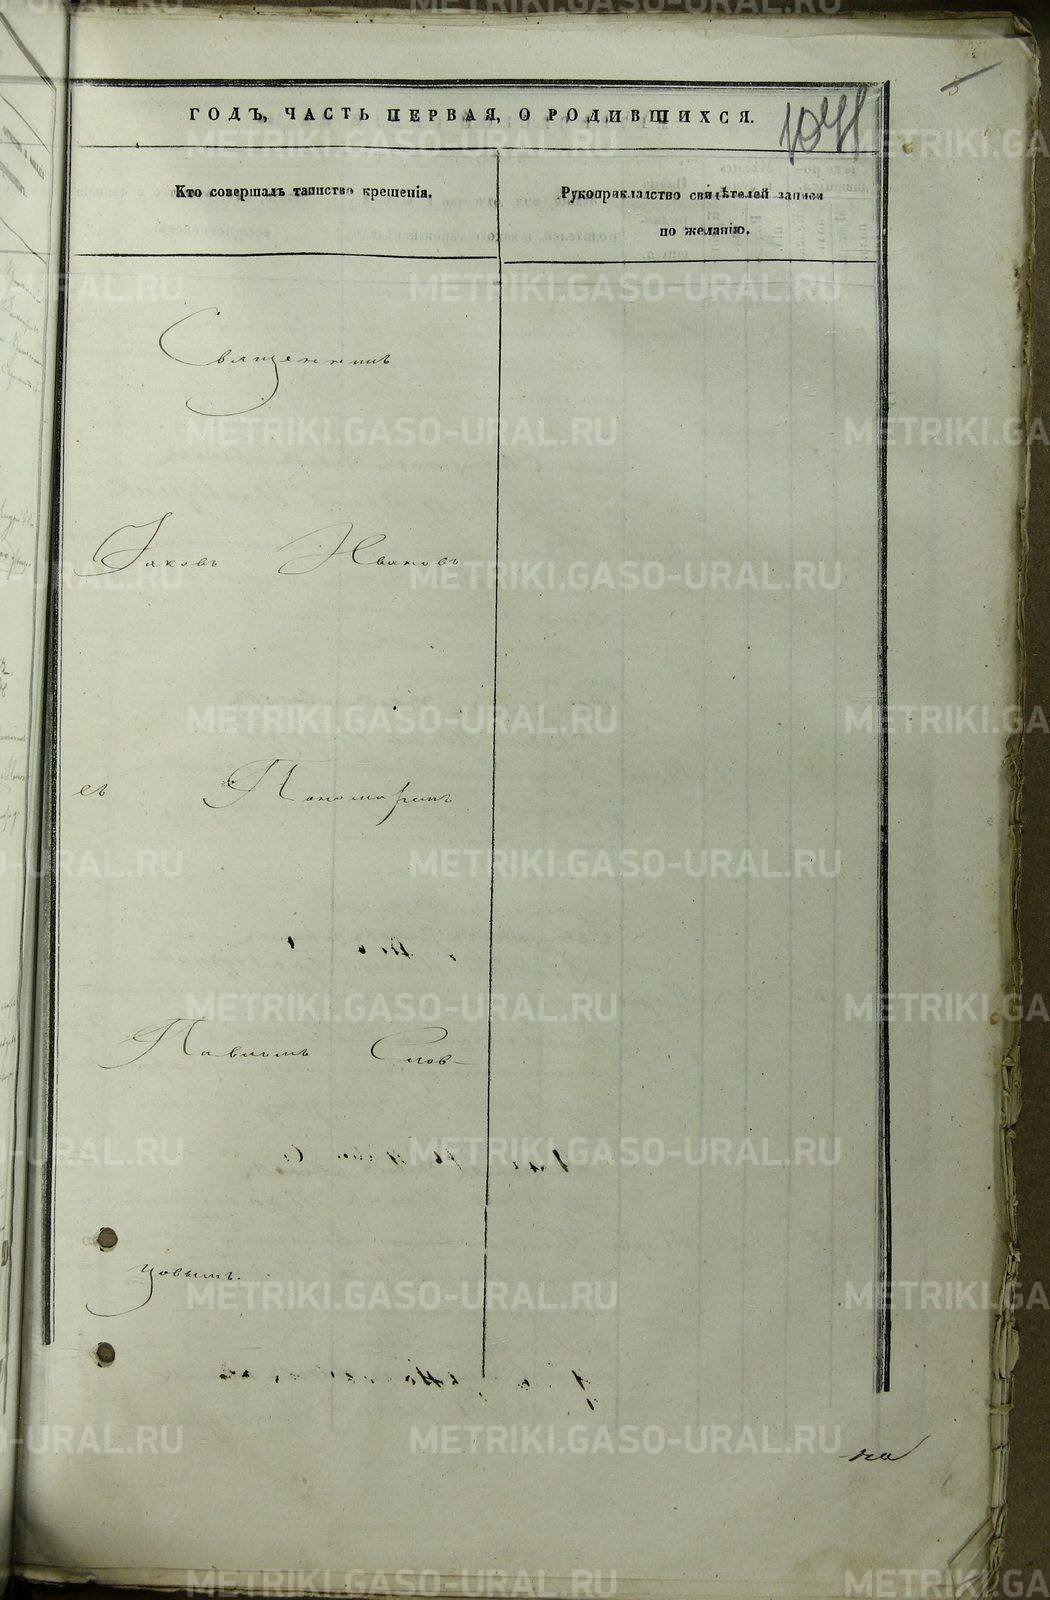 ГОДЪ, ЧАСТЬ ПЕРВАЯ, О РОДИВШИХСЯ.
Кто совершалъ таинство крещенія.
Рукоприкладство свидѣтелей записи
по желанію.
Священникъ
Іаковъ Ивановъ
съ Пономаремъ
Павломъ Слов-
цовымъ.
на
METRIKI.GASO-URAL.RU